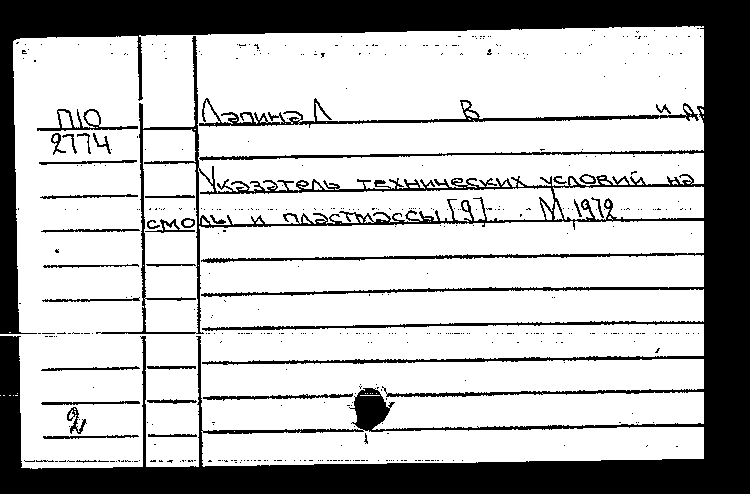 ПЮ Лапина Л В и др
2774
Указатель технических условий на
смолы и пластмассы [9]. М, 1972.
2